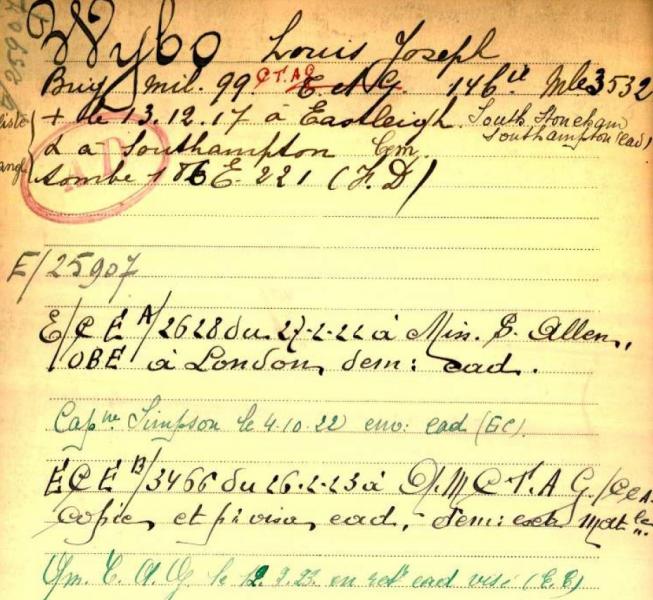 Wybo Louis Joseph
Brig mil. 99 C.T.A.G. E. A. G. 146ie Mle 3532
liste + le 13.12.17 à Eastleigh South Stoneham
Southampton (cad)
angl & à Southampton Cem.
tombe 186 E. 221 (F.D)
E/25907
E/CÉ A/2628 du 27-2-22 à Min. B. Allen,
OBE à London, dem: cad.
Capne Simpson le 4.10.22 env. cad (EC).
ÉCÉ B/3466 du 26-2-23 à D.M C.T.A G./
Copie, et pr visa, cad, dem: Matle
C. A. G. le 12.3.23. en cad visé (E.E)